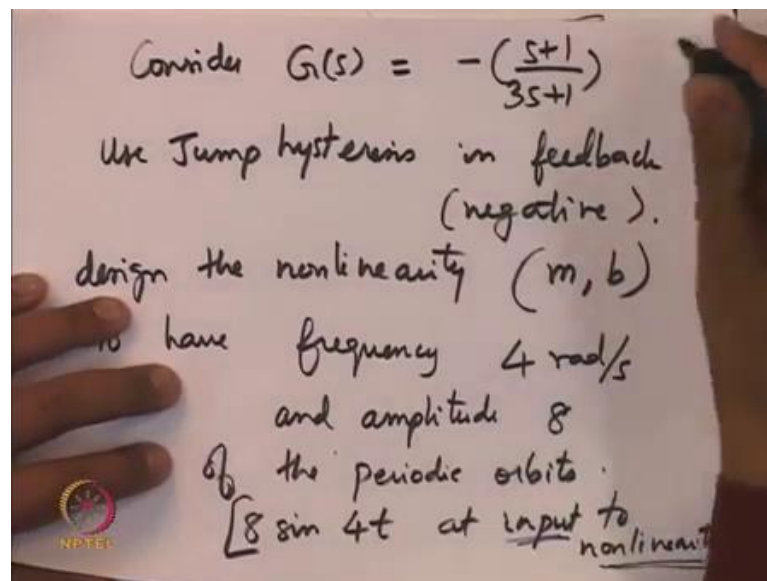 Consider G(s) = -(s+1/3s+1)
Use Jump hysteresis in feedback
(negative).
design the nonlinearity (m, b)
to have frequency 4 rad/s
and amplitude 8
of the periodic orbits.
[8 sin 4t at input to
nonlinearity
NPTEL